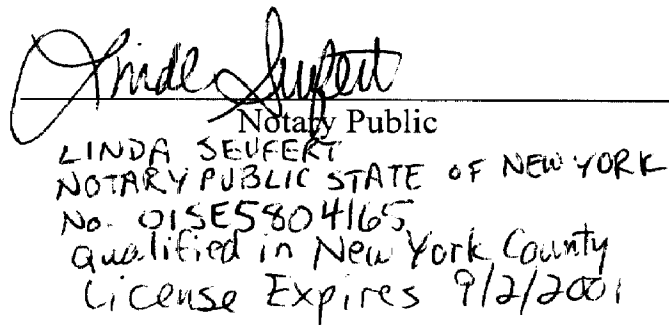 Linda Seufert
Notary Public
LINDA SEUFERT
NOTARY PUBLIC STATE OF NEW YORK
No. 01SE5804165
Qualified in New York County
License Expires 9/2/2001